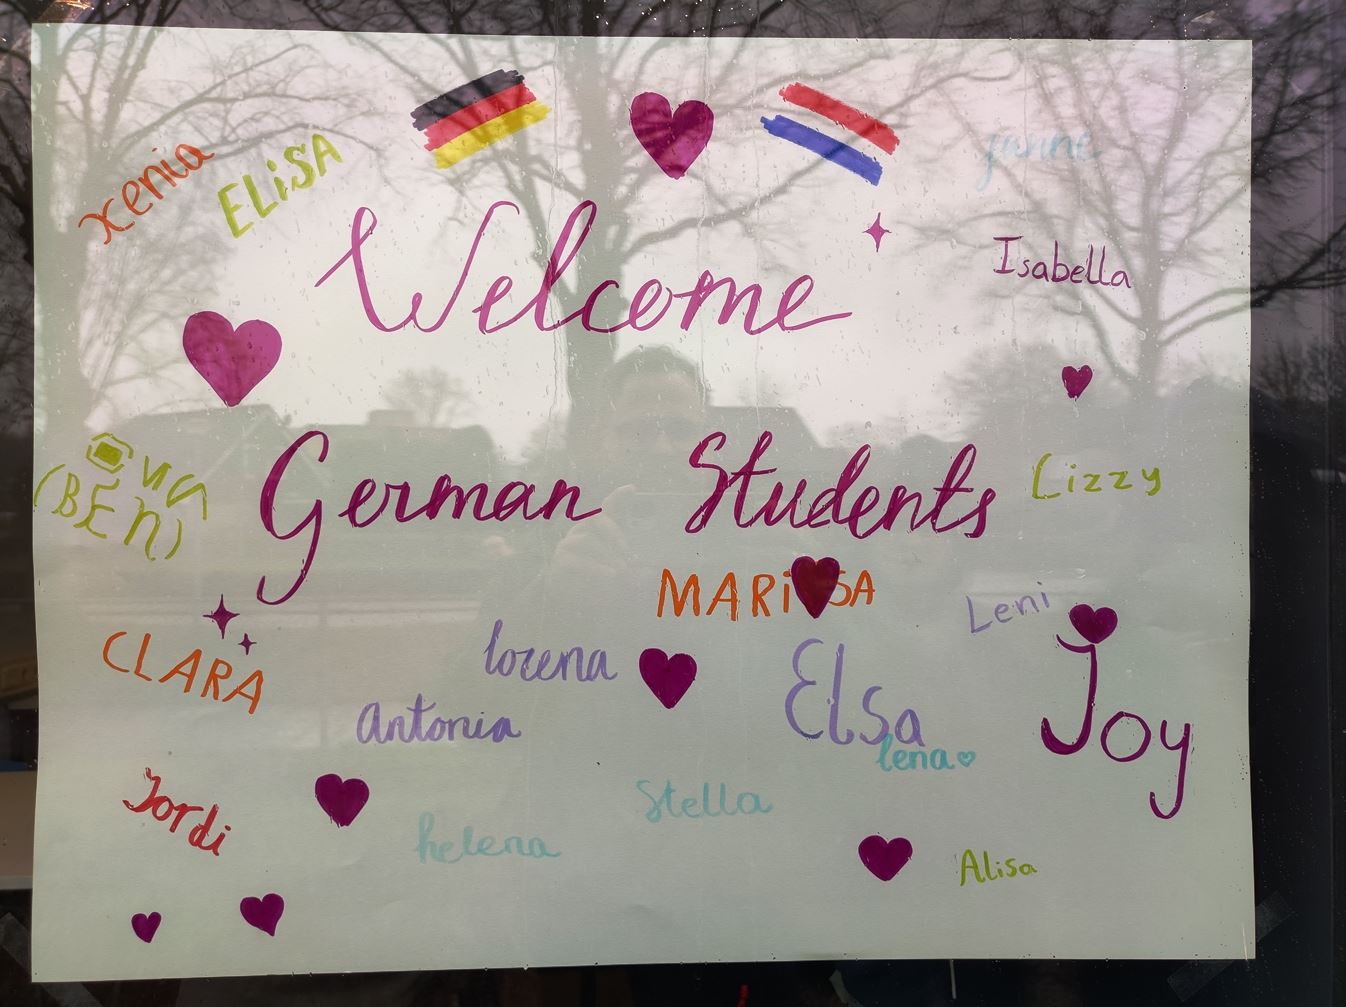 xenia
ELiSA
janne
Welcome
Isabella
German Students
Lizzy
(BEN)
MARiSSA
Leni
CLARA
lorena
Elsa
Joy
Antonia
lena
Jordi
Stella
helena
Alisa